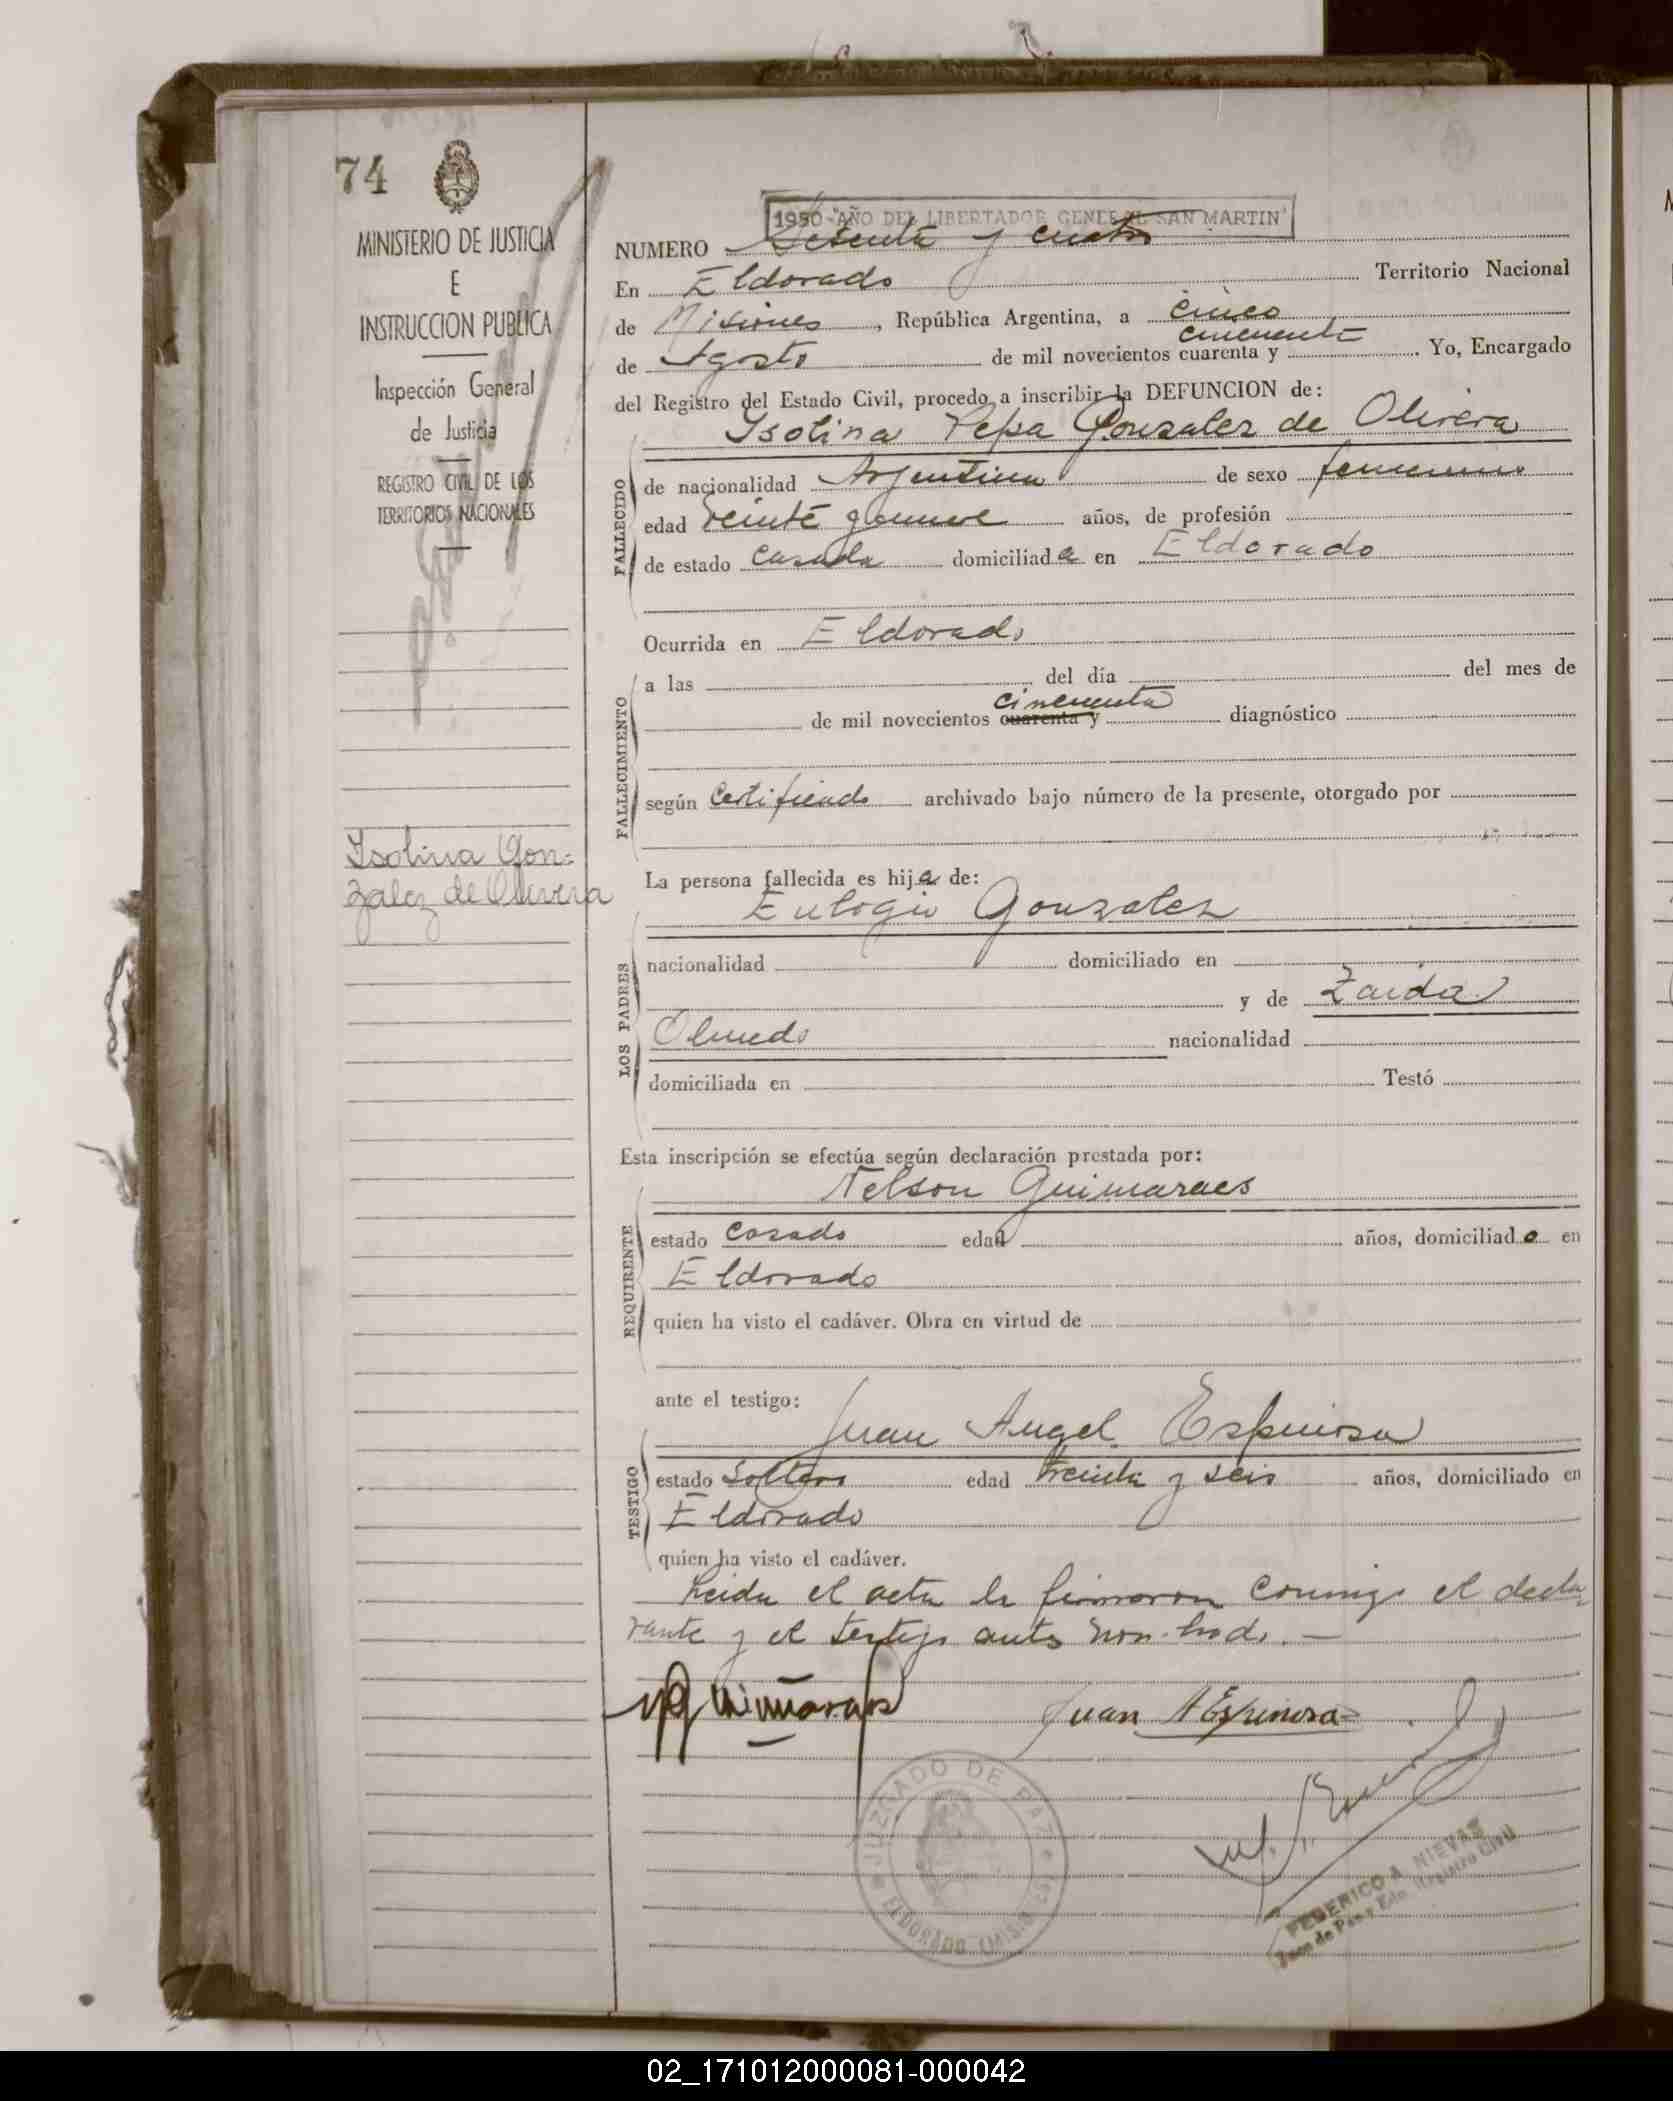 74
MINISTERIO DE JUSTICIA
E
INSTRUCCION PUBLICA
Inspección General
de Justicia
REGISTRO CIVIL DE LOS
TERRITORIOS NACIONALES
Isolina Gon-
zalez de Olivera
1950 "AÑO DEL LIBERTADOR GENERAL SAN MARTIN"
NUMERO Setenta y cuatro
En Eldorado Territorio Nacional
de Misiones, República Argentina, a cinco
cincuenta
de Agosto de mil novecientos cuarenta y Yo, Encargado
del Registro del Estado Civil, procedo a inscribir la DEFUNCION de:
Ysolina Pepa Gonzalez de Olivera
FALLECIDO
de nacionalidad Argentina de sexo femenino
edad veinte y nueve años, de profesión
de estado casada domiciliada en Eldorado
Ocurrida en Eldorado
FALLECIMIENTO
a las del día del mes de
cincuenta
de mil novecientos cuarenta y diagnóstico
según Certificado archivado bajo número de la presente, otorgado por
La persona fallecida es hija de:
Eulogio Gonzalez
LOS PADRES
nacionalidad domiciliado en
y de Zaida
Olmedo nacionalidad
domiciliada en Testó
Esta inscripción se efectúa según declaración prestada por:
Nelson Guimaraes
REQUIRENTE
estado casado edad años, domiciliado en
Eldorado
quien ha visto el cadáver. Obra en virtud de
ante el testigo:
Juan Angel Espinosa
TESTIGO
estado soltero edad treinta y seis años, domiciliado en
Eldorado
quien ha visto el cadáver.
Leida el acta la firmaron conmigo el decla-
rante y el testigo antes nombrado.—
Juan A Espinosa
JUZGADO DE PAZ
ELDORADO (MIS.)
FEDERICO A. NIEVAS
Juez de Paz y Edo. Registro Civil
02_171012000081-000042